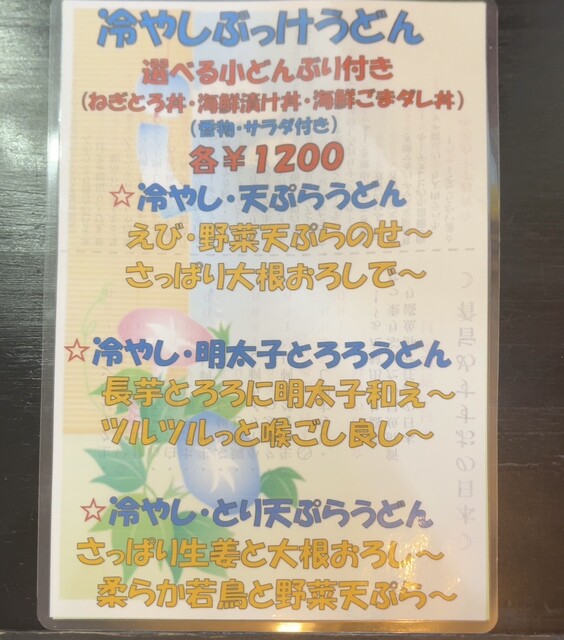 冷やしぶっけうどん
選べる小どんぶり付き
(ねぎとろ丼・海鮮漬け丼・海鮮ごまダレ丼)
(香物・サラダ付き)
各¥1200
☆冷やし・天ぷらうどん
えび・野菜天ぷらのせ〜
さっぱり大根おろしで〜
☆冷やし・明太子とろろうどん
長芋とろろに明太子和え〜
ツルツルっと喉ごし良し〜
☆冷やし・とり天ぷらうどん
さっぱり生姜と大根おろし〜
柔らか若鳥と野菜天ぷら〜